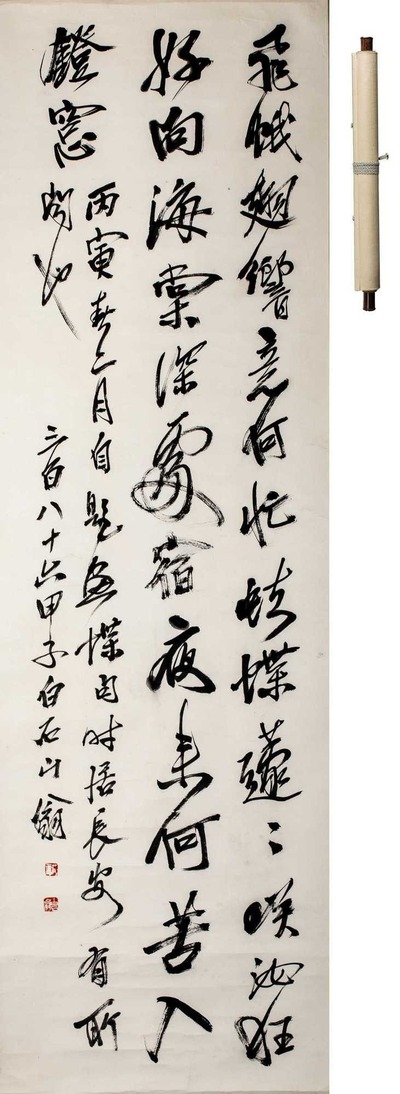 飛蛾翅響意何忙蛺蝶蘧々咲汝狂
好向海棠深處宿夜來何苦入
鐙窓
丙寅春二月自題畫蝶句時居長安有所
聞也
三百八十六甲子白石山翁